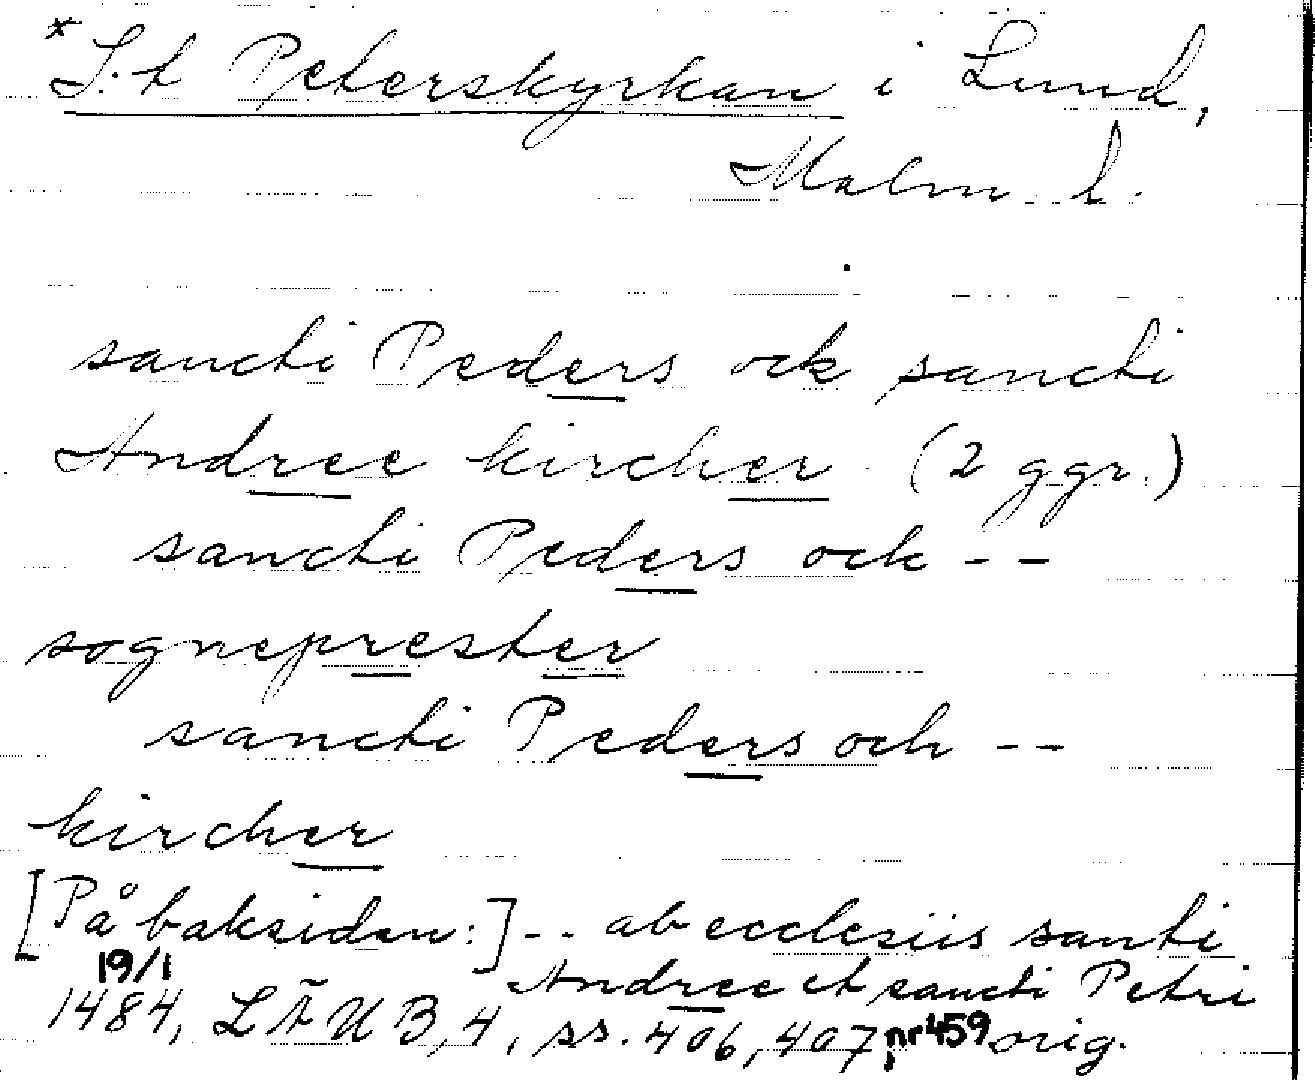 *S:t Peterskyrkan i Lund,
Malm. l.
sancti Peders ock sancti
Andree kircher (2 ggr.)
sancti Peders ock --
sogneprester
sancti Peders och --
kircher
[På baksidan:] -- ab ecclesiis santi
Andree et sancti Petri
19/1
1484, LÄUB, 4, ss. 406, 407, nr 459 orig.